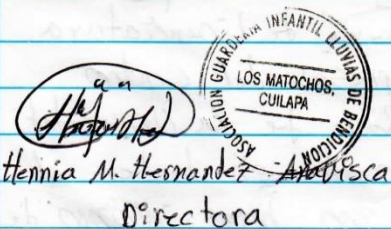 ASOCIACION GUARDERIA INFANTIL LLUVIAS DE BENDICION
LOS MATOCHOS,
CUILAPA
Hennia M. Hernandez Aravisca
Directora